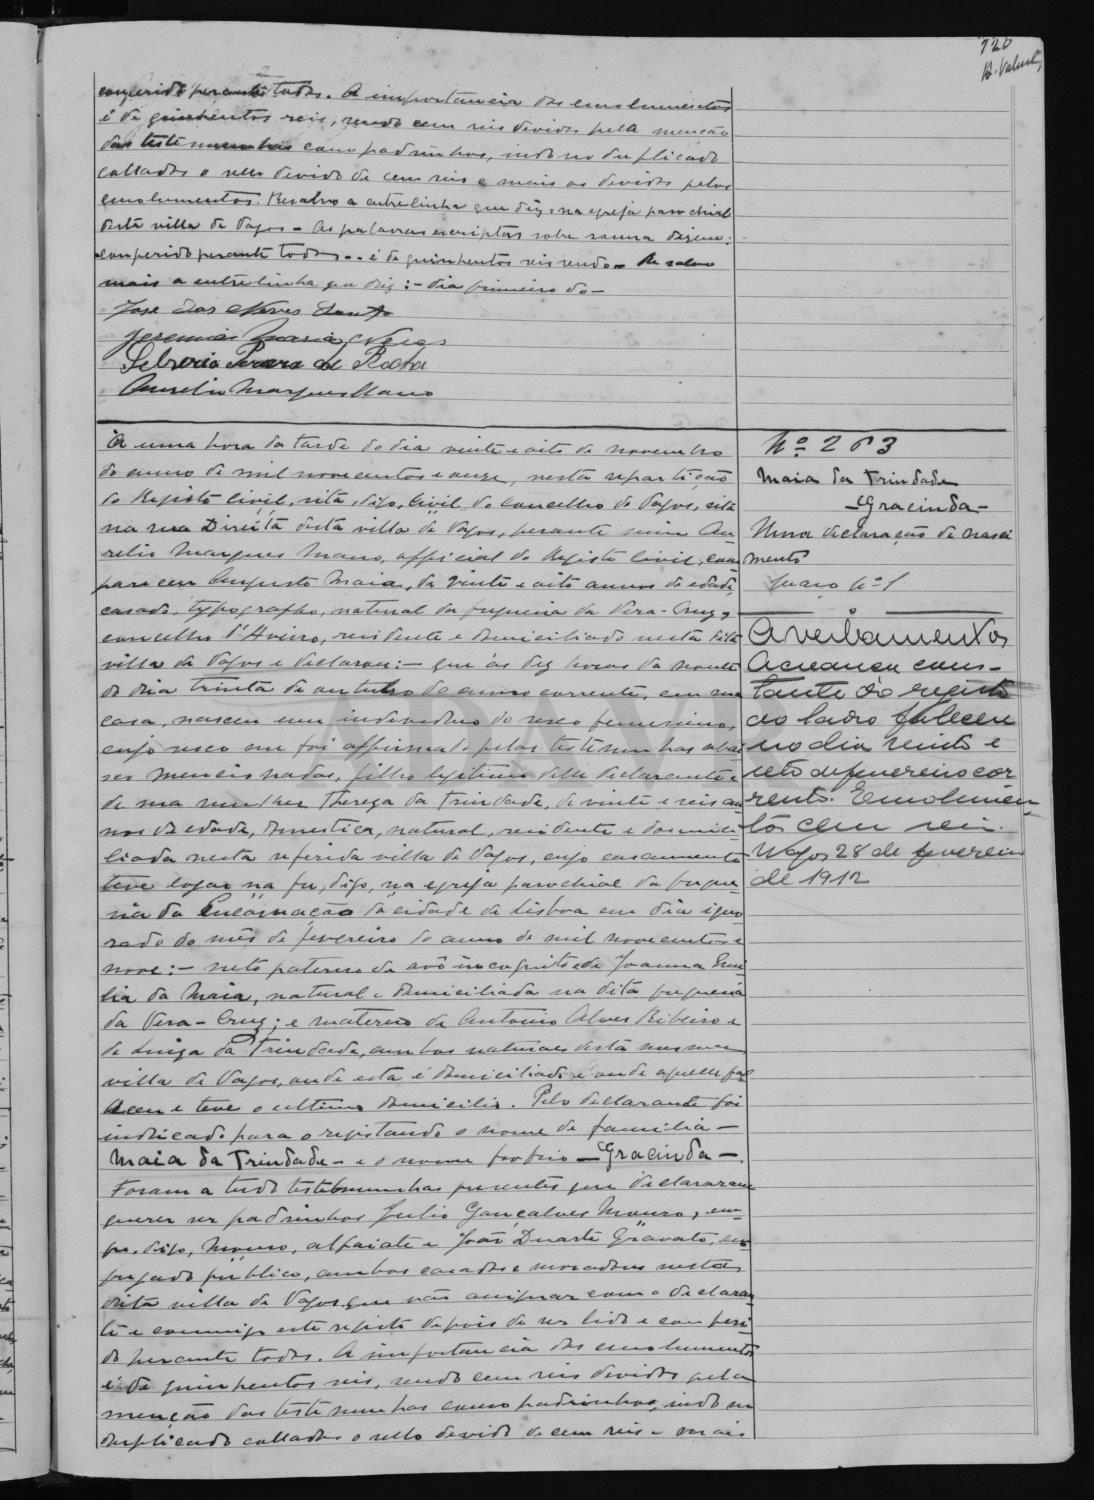 120
conferido perante todos. A importancia dos emolumentos
é de quinhentos reis, sendo cem reis devidos pela menção
das testemunhas como padrinhos, indo no duplicado
collados o sello devido de cem reis e mais os devidos pelos
emolumentos. Resalvo a entrelinha que diz: na egreja parochial
desta villa de Vagos - As palavras escriptas sobre rasura dizem:
conferido perante todos - é de quinhentos reis sendo - Resalvo
mais a entrelinha que diz: - dia primeiro do -
José das Neves
Jeremias Maria Neves
Pereira da Rocha
Aurelio Marques Mano
A uma hora da tarde do dia vinte e oito de novembro
do anno de mil novecentos e onze, nesta repartição
do Registo civil, sita, digo, Civil do concelho de Vagos, sita
na rua Direita desta villa de Vagos, perante mim Au-
relio Marques Mano, official do Registo Civil, com-
pareceu Augusto Maia, de vinte e oito annos de edade,
casado, typographo, natural da freguesia da Vera-Cruz,
concelho d'Aveiro, residente e domiciliado nesta dita
villa de Vagos e declarou: - que ás dez horas da noute
do dia trinta de outubro do anno corrente, em sua
casa, nasceu um individuo do sexo femenino,
cujo sexo me foi affirmado pelas testemunhas abai-
xo mencionadas, filho legitimo delle declarante e
de sua mulher Thereza da Trindade, de vinte e seis an-
nos de edade, domestica, natural, residente e domici-
liada nesta referida villa de Vagos, cujo casamento
teve logar na fre, digo, na egreja parochial da fregue-
sia da Encarnação da cidade de Lisboa em dia igno-
rado do mês de fevereiro do anno de mil novecentos e
nove: - neto paterno de avô incognito e de Joanna Emi-
lia da Maia, natural e domiciliada na dita freguesia
da Vera-Cruz; e materno de Antonio Alves Ribeiro e
de Luiza da Trindade, ambos naturaes desta mesma
villa de Vagos, onde esta é domiciliada e onde aquelle fal-
leceu e teve o ultimo domicilio. Pelo declarante foi
indicado para o registando o nome de familia -
Maia da Trindade - e o nome proprio - Gracinda -.
Foram a tudo testemunhas presentes que declararam
querer ser padrinhos Julio Gonçalves Mouro, em-
pr. digo, Mouro, alfaiate e João Duarte Gravato, em-
pregado público, ambos casados e moradores nesta
dita villa de Vagos, que vão assignar com o declaran-
te e commigo este registo depois de ser lido e conferi-
do perante todos. A importancia dos emolumentos
é de quinhentos reis, sendo cem reis devidos pela
menção das testemunhas como padrinhos, indo no
duplicado collados o sello devido de cem reis e mais
Nº 263
Maia da Trindade
- Gracinda -
declaração de nasci
mento
Maço nº 1
Averbamentos
A creança cons-
tante do registo
ao lado falleceu
no dia vinte e
sete de fevereiro cor
rente. Emolumen
tos cem reis.
Vagos 28 de fevereiro
de 1912
ADAVR